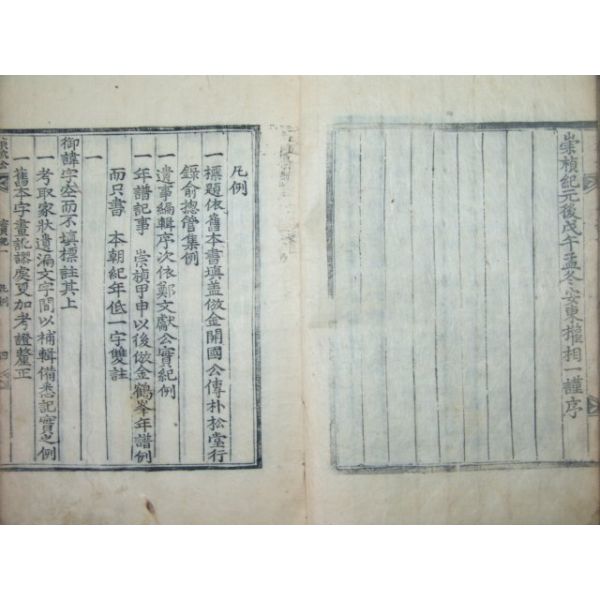 崇禎紀元後戊午孟冬安東權相一謹序
凡例
一標題依舊本書填盖倣金開國公傳朴松堂行
錄俞摠管集例
一遺事編輯序次依鄭文獻公實紀例
一年譜記事 崇禎甲申以後倣金鶴峯年譜例
而只書 本朝紀年低一字雙註
一
御諱字空而不填標註其上
一考取家狀遺漏文字間以補輯備悉記實之例
一舊本字畫訛謬處更加考證釐正
實紀一 凡例 四